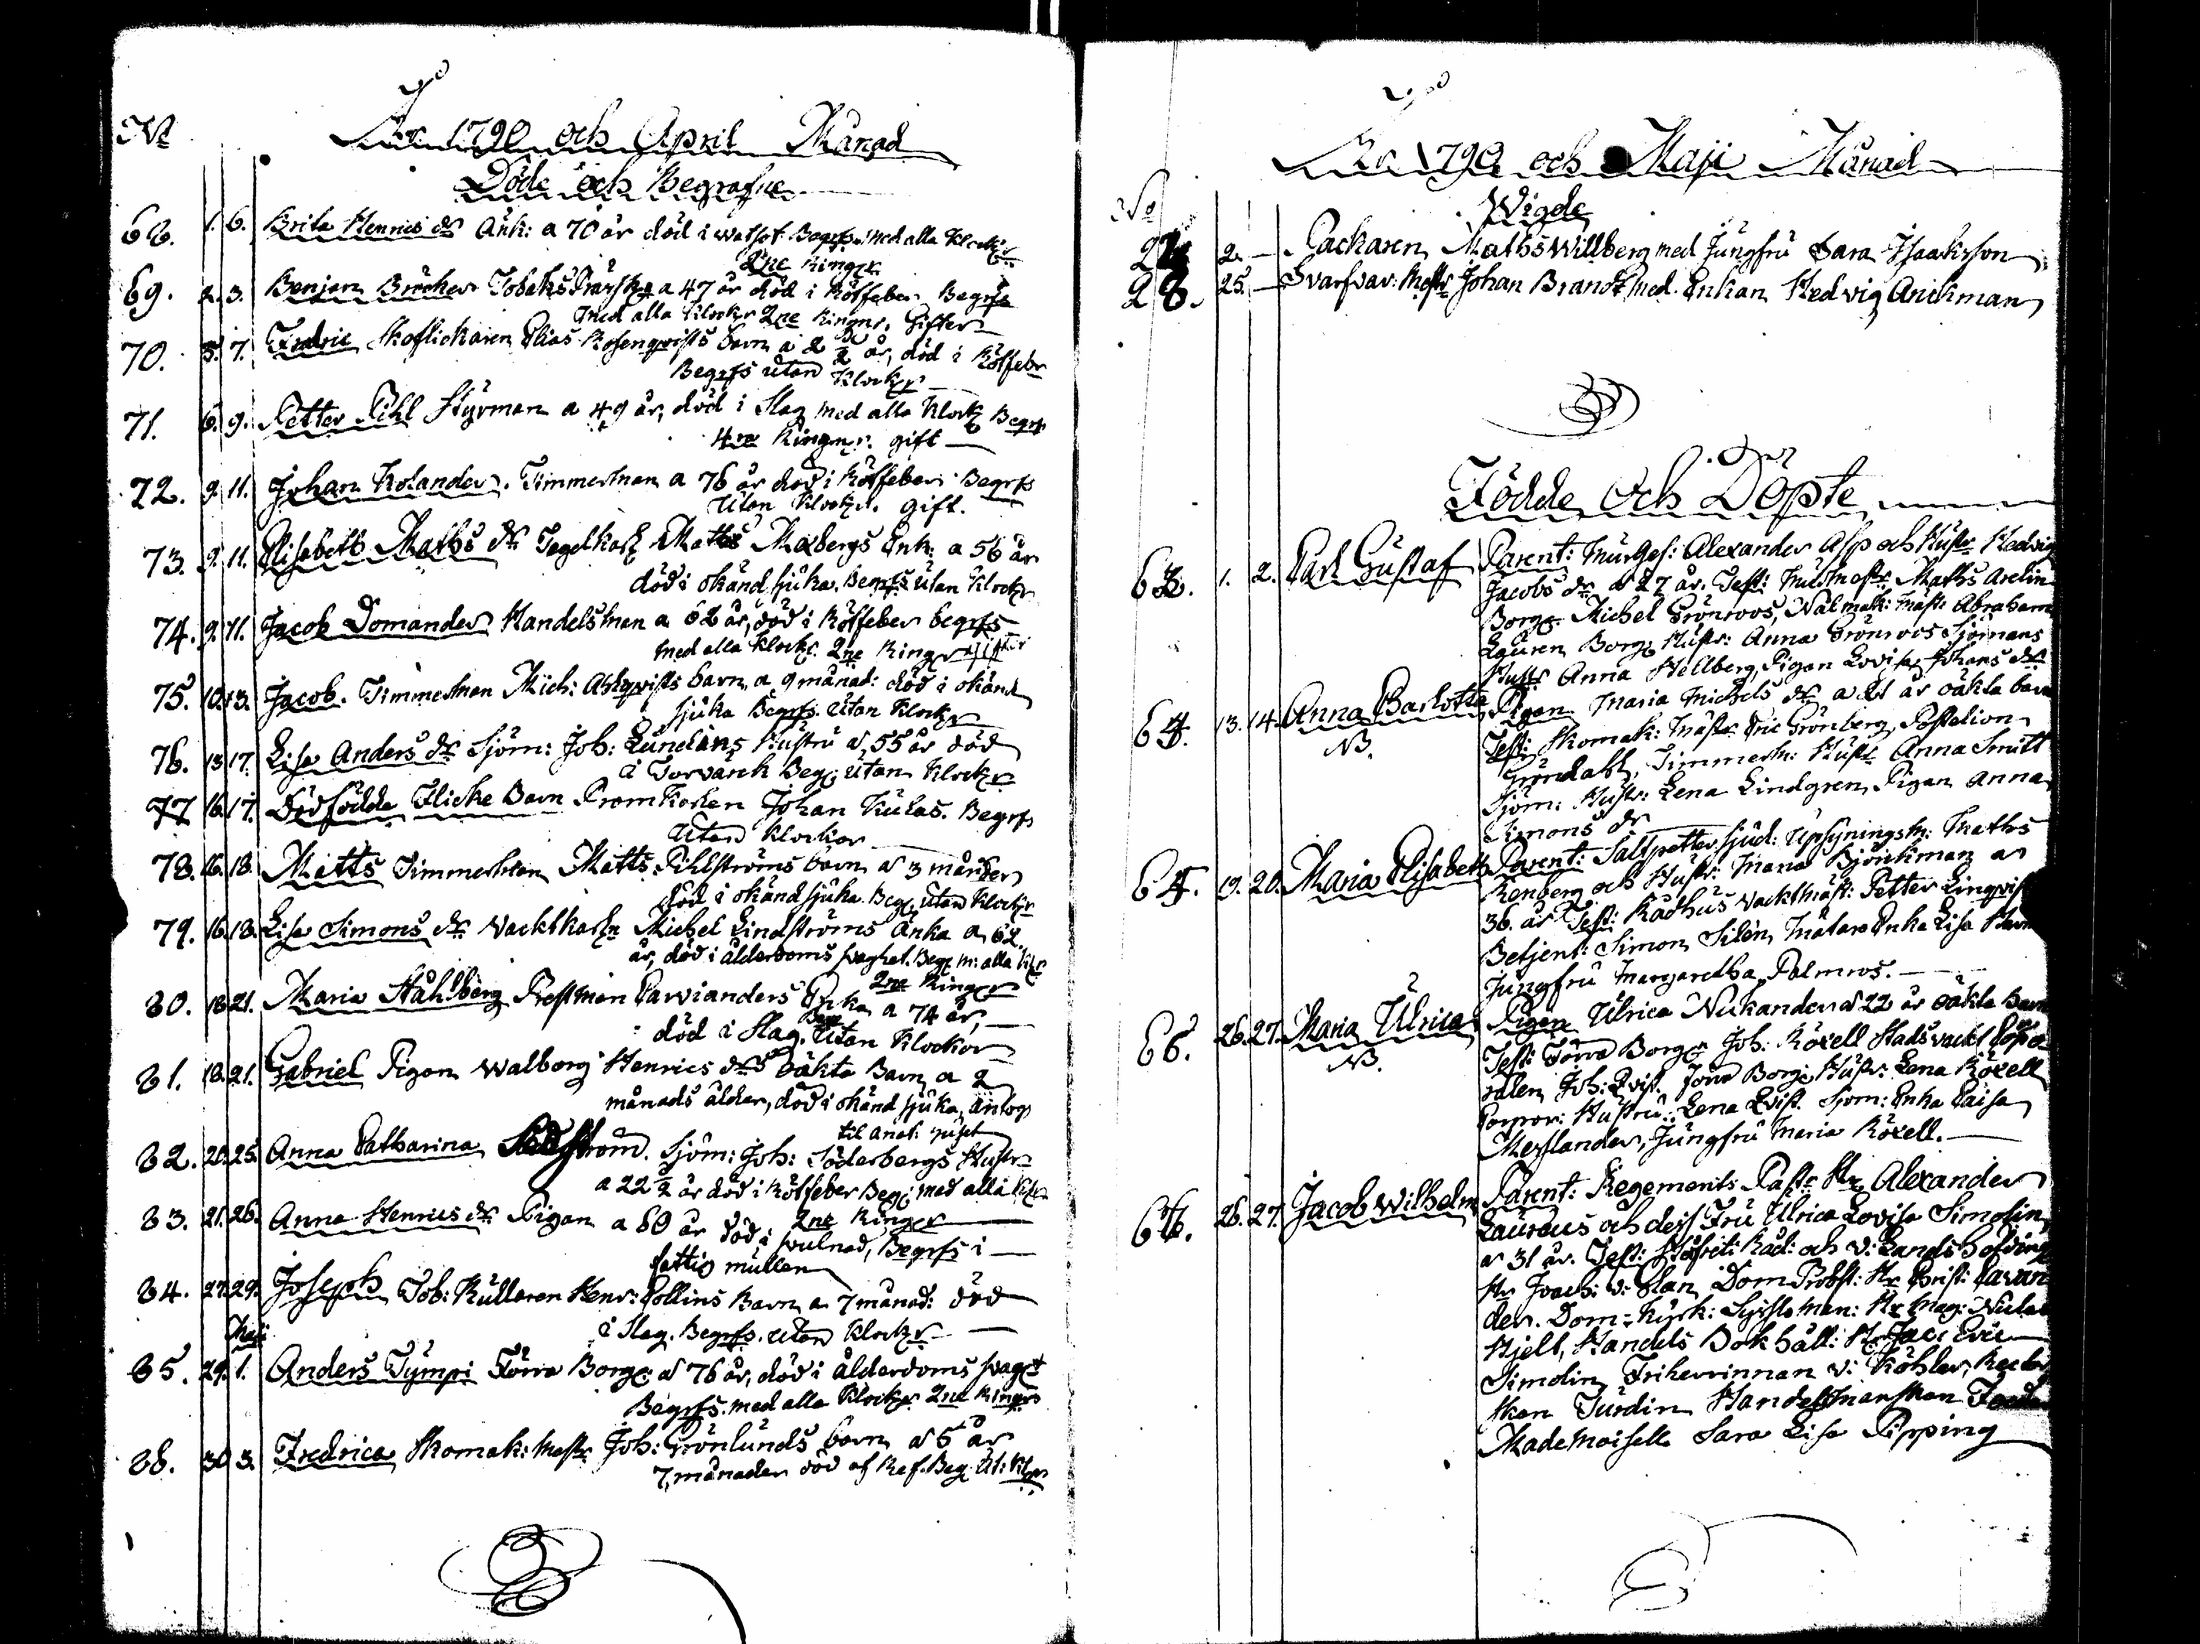 No
År 1790 och April Månad
Döde och Begrafne
68. 1. 6. Brita Henrics dr Änk: a 70 år död i watsot. Begrfs med alla Klockr
2ne Ringr
69. 2. 3. Benjam Bröcker Tobaks a 47 år död i Rötfeber Begrfs
med alla Klockr 2ne Ringnr. Gifter
70. 5. 7. Fredric Skoflickaren Elias Rosenqvists barn a 2 1/2 år, död i Rötfebr
Begrfs utan Klockr
71. 6. 9. Petter Pihl Styrman a 49 år, död i Slag med alla Klock Begrfs
4ra Ringnr. gift
72. 9. 11. Johan Kolander. Timmerman a 76 år död i Rötfeber Begrfs
Utan Klockr. gift.
73. 9. 11. Elisabeth Maths dr Tegelkarl Matts Moxbergs Enk: a 56 år
död i okänd sjuka. Begrfs utan Klockr
74. 9. 11. Jacob Domander Handelsman a 62 år, död i Rötfeber begrfs
med alla Klockr. 2ne Ringr gifter
75. 10. 13. Jacob. Timmerman Mich: Ahlqvists barn, a 9 månad: död i okänd
sjuka Begrfs. utan Klockr
76. 13. 17. Lisa Anders dr Sjöm: Joh: Lundäns Hustru a 55 år död
i Torrvärck Beg: utan Klockr
77 16. 17. Dödfödde Flicke Barn Promkarlen Johan Kulas. Begrfs
utan Klockor
78. 16. 18. Matts Timmerman Matts Pihlströms barn a 3 månder
död i okänd sjuka. Beg: utan Klockr
79. 16. 18. Lisa Simons dr Vacktkarln Michel Lindströms änka a 62
år, död i ålderdoms svaghet. Begr m: alla Klr
2ne Ringr
80. 18. 21. Maria Ståhlberg Prestman Carvianders Enka a 74 år,
död i Slag. Begr Utan Klockor
81. 18. 21. Gabriel Pigan Walborg Henrics drs oäkta Barn a 2
månads ålder, död i okänd sjuka, antogs
til anat: huset
82. 20. 25. Anna Catharina Sjöm: Joh: Söderbergs Hustr
a 22 1/2 år död i Rötfeber Beg: med alla Klr
83. 21. 26. Anna Henrics dr Pigan a 80 år död i 2ne Ringr
svulnad, Begrfs i
fattig mullen
84. 27. 29. Joseph Tob: Rullaren Henr: Collins Barn a 7 månad: död
i Slag. Begrfs. utan Klockr
Maji
85. 29. 1. Anders Tympi Förra Borg: a 76 år, död i ålderdoms svagt
Begrfs. med alla Klockr 2ne Ringr
86. 30 3. Fredrica Skomak: Mästr Joh: Grönlunds barn a 5 år
7 månader död af Ref. Beg: Ut: Klr
År 1790 och Maji Månad
No
Wigde
27 2. Packaren Maths Willberg med Jungfru Sara Isaaksson
28. 25. Svarfvar: Mestr Johan Brandt med Enkan Hedvig Anckman
Födde och Döpte
63. 1. 2. Carl Gustaf Parent: Mur Ges: Alexander Asp och Hustr Hedvig
Jacobs dr a 27 år. Test: Murmestr Maths Arelin
Borgr Michel Grönroos, Nålmak: Mäst: Abraham
Lauren Borg: Hustr: Anna Grönroos Sjömans
Hustr Anna Hellberg, Pigan Lovisa Johans dr
64. 13. 14. Anna Carlotta Pigan Maria Michels dr a 21 år oäkta barn
NB. Test: Skomak: Mästr Eric Grönberg, Postelion
Gröndahl, Timmerm: Hustr Anna Smitt
Sjöm: Hustr: Lena Lindgren, Pigan Anna
Simons dr
65. 19. 20. Maria Elisabeth Parent: Saltpetter sjud: Upsyningsm: Maths
Renberg och Hustr: Maria Björckman a
36. år Test: Rådhus vacktmäst: Petter Linqvist
Betjent: Simon Silen, Mätare Enka Lisa
Jungfru Margaretha Palmros.
66. 26. 27. Maria Ulrica Pigan Ulrica Nukander a 22 år oäkta Barn
NB. Test: Förra Borgr Joh: Roxell Stadsvackt Coporalen
Joh: Qvist. Förra Borg: Hustr: Lena Roxell
Corpor: Hustru: Lena Qvist. Sjöm: Enka Caisa
Meslander, Jungfru Maria Roxell.
67. 26. 27. Jacob Wilhelm Parent: Regements Pastr Hr Alexander
Lauræus och dess Fru Ulrica Lovisa Simolin
a 31 år. Test: Hofrett: Råd: och V: Landshöfding
Hr Joach: v: Glan Dom Probst: Hr Christ: Cavander.
Dom-Kyrk: Sysloman: Hr Mag: Niclas
Hjelt, Handels Bokhåll: Hr Jac: Eric
Simolin Friherrinnan v: Köhler, Rectorskan
Turdin Handelsmanskan
Mademoiselle Sara Lisa Pipping